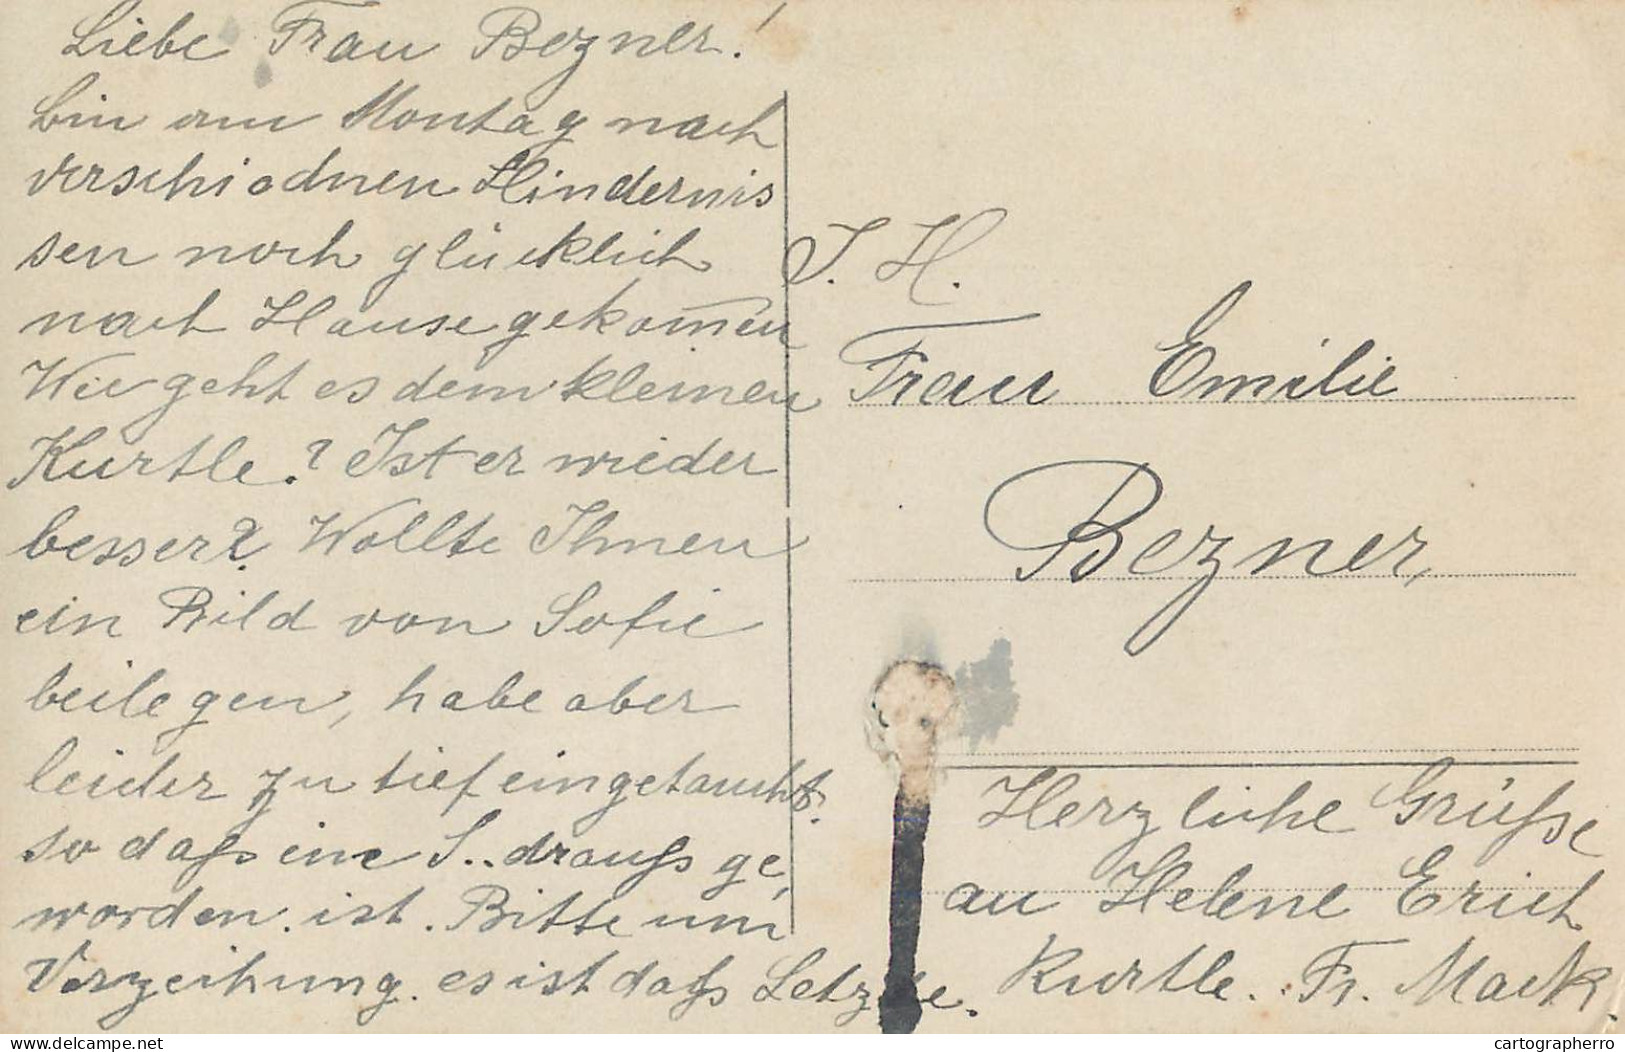 Liebe Frau Bezner!
bin am Montag nach
verschiednen Hindernis
sen noch glücklich
nach Hause gekom̅en
Wie geht es dem kleinen
Kurtle.? Ist er wieder
besser? Wollte Ihnen
ein Bild von Sofie
beilegen, habe aber
leider zu tief eingetaucht.
so daß eine S.. drauß ge,
worden. ist. Bitte um
Verzeihung. es ist daß Letzte.
I. H.
Frau Emilie
Bezner,
Herzliche Grüße
an Helene Erich
Kurtle. Fr. Mack.
delcampe.net
cartographerro